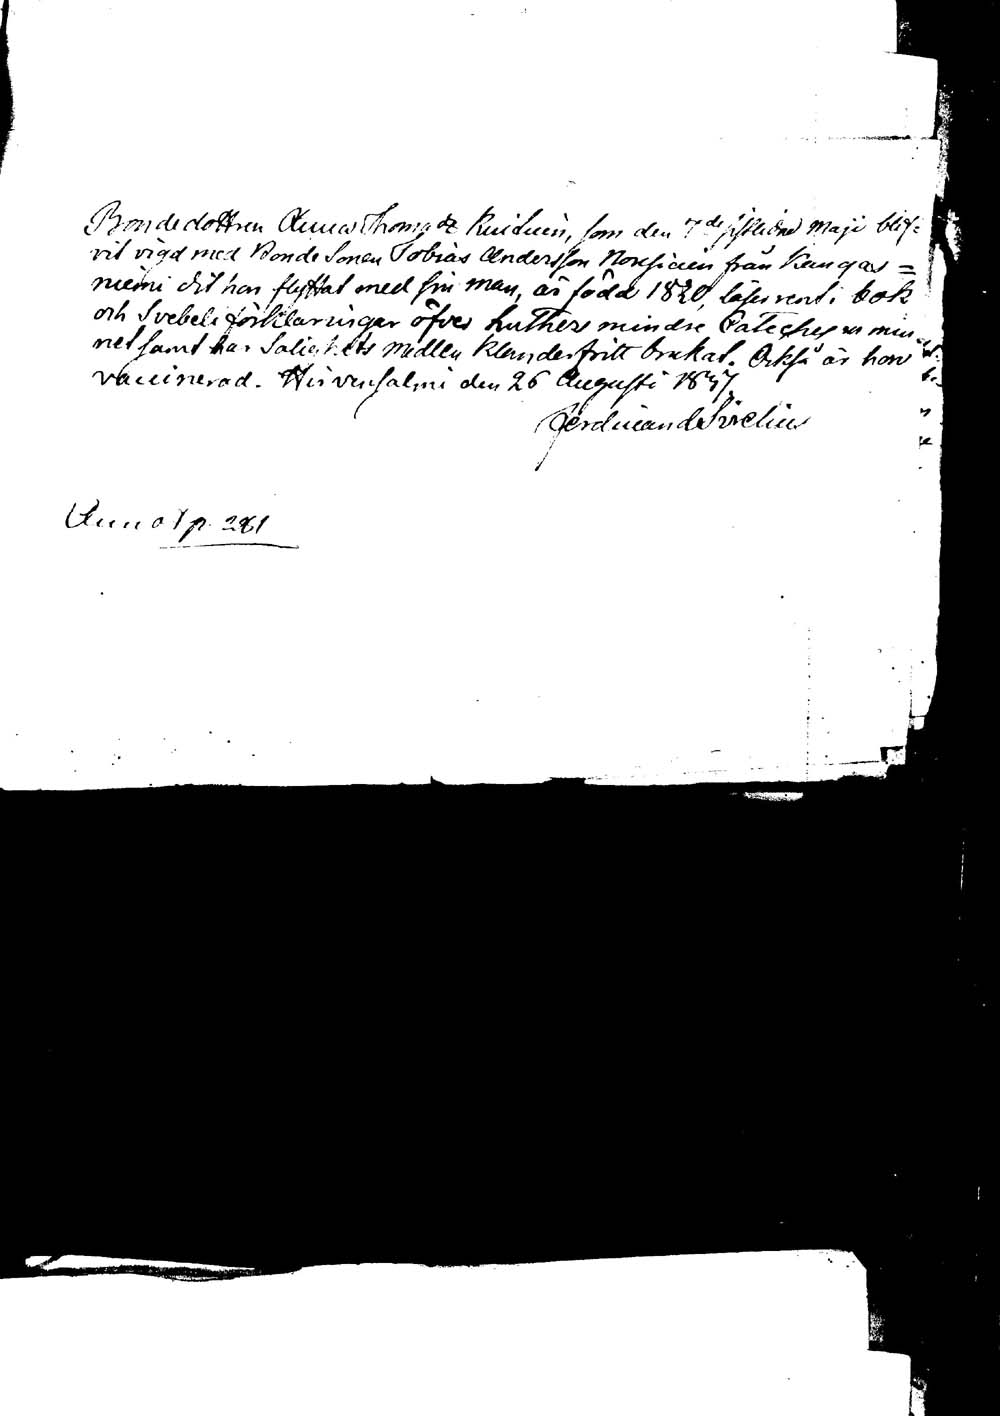 Bondedottren Anna Thomsdr Kuiduin, som den 7de sistledne Maji blif=
vit vigd med Bonde Sonen Tobias Andersson från Kangas=
niemi dit hon flyttat med sin man, är född 1820, läser rent i bok
och Svebeli förklaringar öfver Luthers mindre Cateches ur min
net samt har Salighets medlen klanderfritt brukat. Också är hon
vaccinerad. Hirvensalmi den 26 Augusti
Ferdinand Sirelius
Annot p. 281